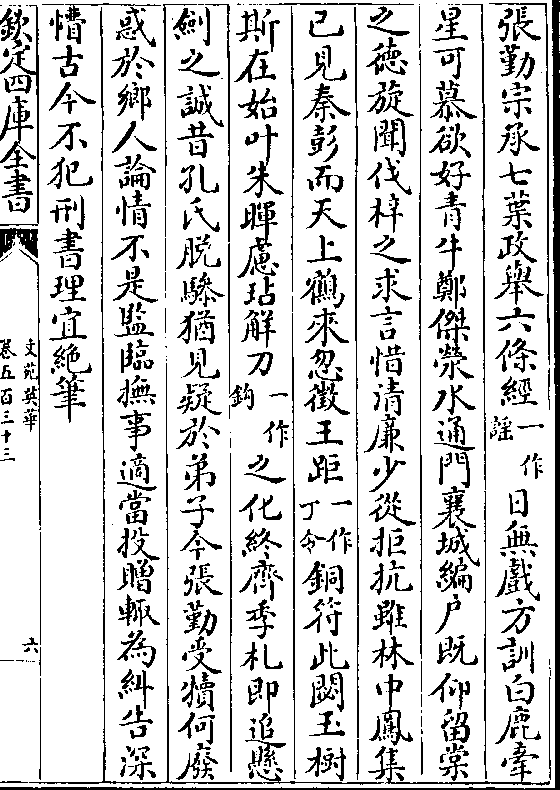 張勤宗承七葉政舉六條經一作謡日無戲方訓白鹿牽
星可慕欲好青牛鄭傑滎水通門襄城編户既仰留棠
之德旋聞伐梓之求言惜清廉少從拒抗雖林中鳳集
已見秦彭而天上鶴來忽徵王距一作丁令銅符此闕玉樹
斯在始叶朱暉慮玷解刀一作鈎之化終齊季札即追懸
劍之誠昔孔氏脱驂猶見疑於弟子今張勤受犢何廢
惑於鄉人論情不是監臨撫事適當投贈輙為糾告深
懵古今不犯刑書理宜絶筆
欽定四庫全書
文苑英華
卷五百三十三
六